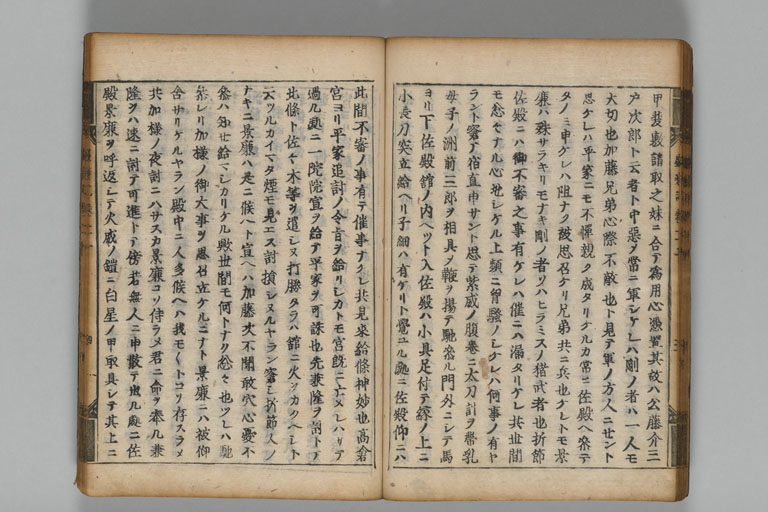 甲斐敷請取之妹ニ合テ為用心憑置其故ハ公藤介三
戸次郎ト云者ト中悪ク常ニ軍シケレハ剛ノ者ハ一人モ
大切也加藤兄弟心際不敵也ト見テ軍ノ方人ニセント
思ケレハ平家ニモ不憚親ク成タリケルカ常ニ佐殿ヘ参テ
タノミ申ケレハ阻ナク被思召ケリ兄弟共ニ兵也ケレトモ景
廉ハ殊サラキリモナキ剛ノ者ソハヒラミスノ猪武者也折節
佐殿ニハ御不審之事有ケレハ催ニハ漏タリケレ共世間
モ忩々ナル心地シケル上頻ニ胸騒ノシケレハ何事ノ有ヤ
ラント窃テ宿直申サント思テ紫威ノ腹巻ニ太刀計ヲ帯乳
母子ノ洲前三郎ヲ相具メ鞭ヲ揚テ馳参ル門外ニシテ馬
ヨリ下佐殿舘ノ内ヘツト入佐殿ハ小具足付テ縁ノ上ニ
小長刀突立給ヘリ子細ハ有ケリト覚ユル処ニ佐殿仰ニハ
此間不審ノ事有テ催事ナクレ共見来給條神妙也高倉
宮ヨリ平家追討ノ令旨ヲ給リシカトモ宮既ニナメレハリテ
過ル処ニ一院院宣ヲ給テ平家ヲ可誅也先兼隆ヲ討トテ
此條ト佐々木等ヲ遣シヌ打勝タラハ舘ニ火ヲカケヘシト
云ツルカイマタ煙モ見エス討損シヌルヤラン窃シ折節人ノ
ナキニ景廉ハ是ニ候ヘト宣ヘハ加藤次不聞敢穴心憂不
参ハ知セ給マシカリケル歟世間モ何トナク忩々也ツレハ馳
参レリ加様ノ御大事ヲ思召立ケルニナト景廉ニハ被仰
合サリケルヤラン殿中ニ人多候ヘハ我モ〱トコソ存スラメ
共加様ノ夜討ニハサスカ景廉コソ侍ラメ君ニ命ヲ奉ル兼
隆ヲハ速ニ討テ可進トテ傍若無人ニ申散テ出ル処ニ佐
殿景廉ヲ呼返シテ火威ノ鎧ニ白星ノ甲取具シテ其上ニ